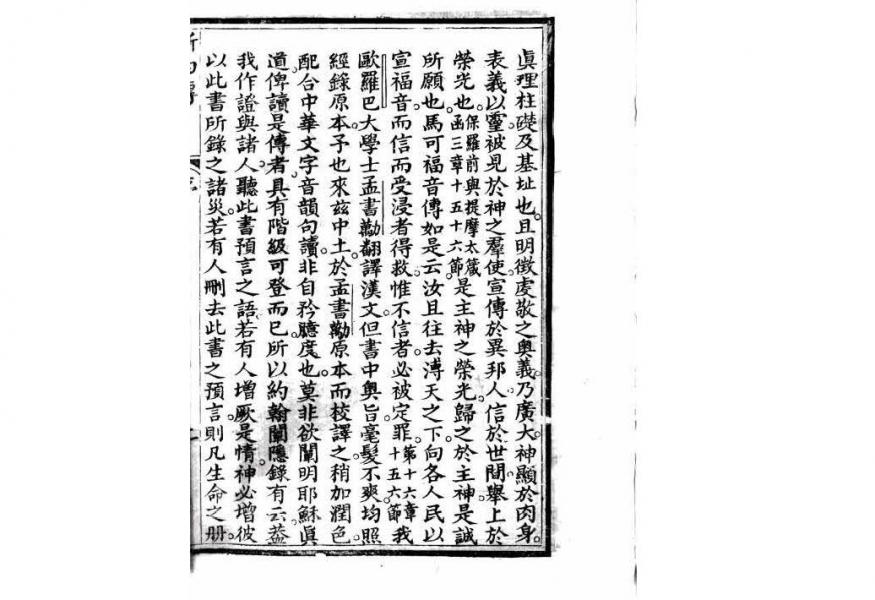 眞理柱礎及基址也且明徵虔敬之奥義乃廣大神顯於肉身
表義以靈被見於神之羣使宣傳於異邦人信於世間舉上於
榮光也保羅前與提摩太箴函三章十五十六節是主神之榮光歸之於主神是誠
所願也馬可福音傳如是云汝且往去溥天之下向各人民以
宣福音而信而受浸者得救惟不信者必被定罪第十六章十五六節我
歐羅巴大學士孟書勸翻譯漢文但書中奥旨毫髮不爽均照
經錄原本予也來兹中土於孟書勸原本而校譯之稍加潤色
配合中華文字音韻句讀非自矜臆度也莫非欲闡明耶穌眞
道俾讀是傳者具有階級可登而已所以約翰闡隱錄有云蓋
我作證與諸人聽此書預言之語若有人增厥是情神必增彼
以此書所錄之諸災若有人刪去此書之預言則凡生命之册